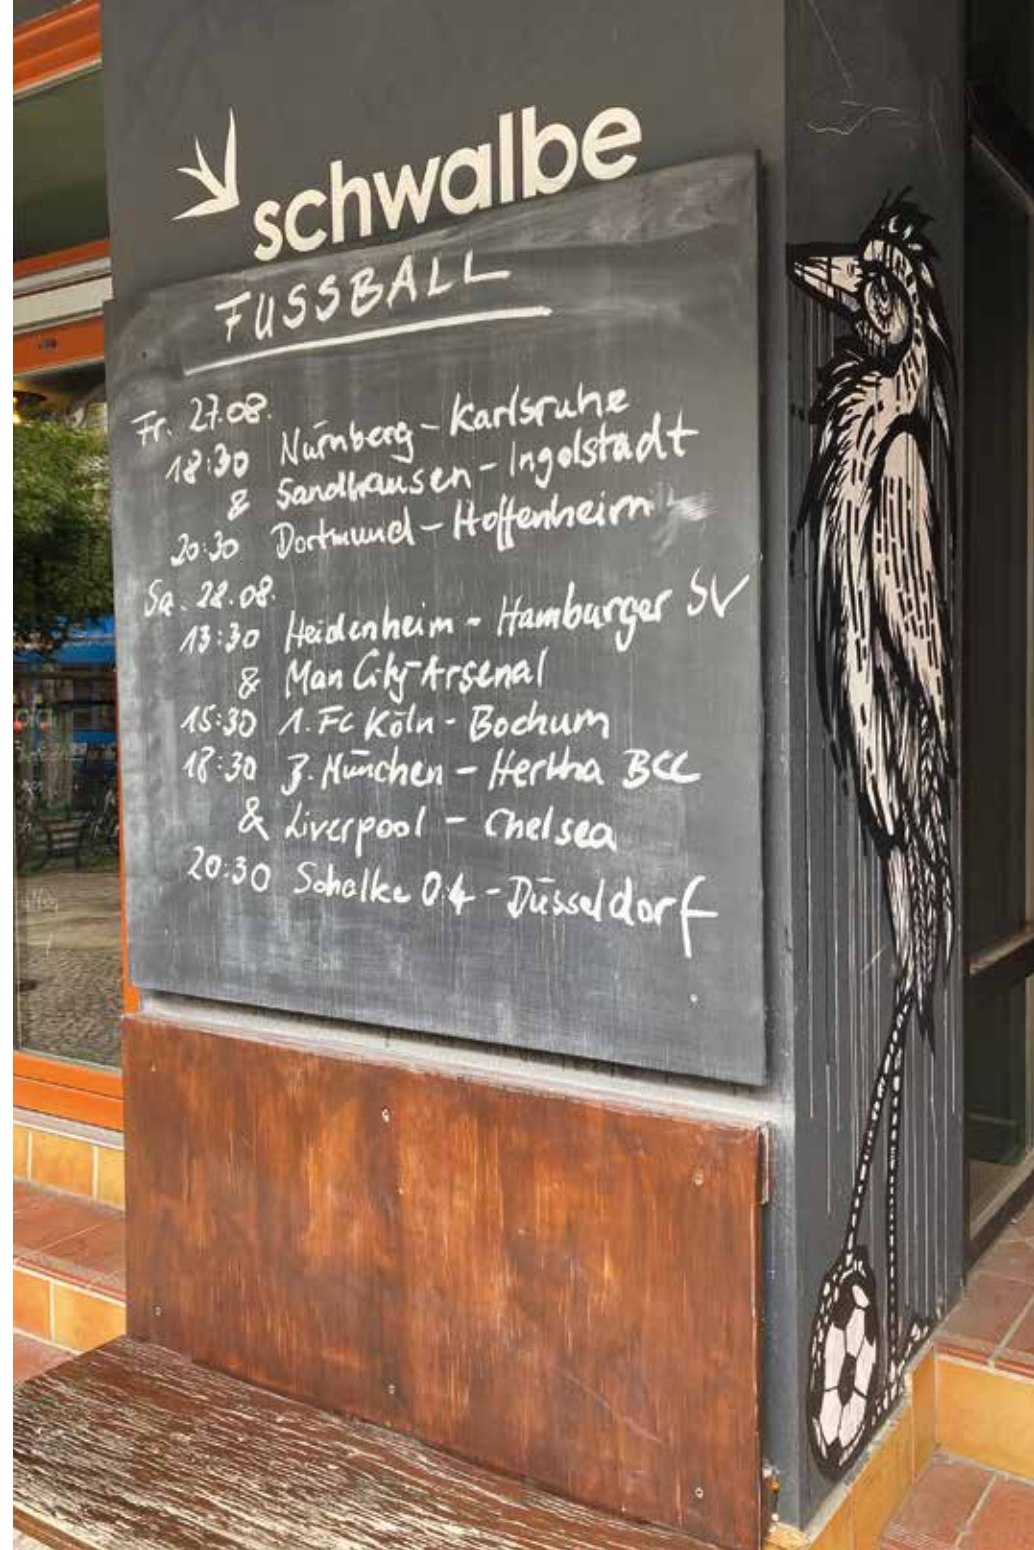 schwalbe
FUSSBALL
Fr. 27.08.
18:30 Nürnberg - Karlsruhe
& Sandhausen - Ingolstadt
20:30 Dortmund - Hoffenheim
Sa. 28.08.
13:30 Heidenheim - Hamburger SV
& Man City - Arsenal
15:30 1. FC Köln - Bochum
18:30 B. München - Hertha BSC
& Liverpool - Chelsea
20:30 Schalke 04 - Düsseldorf